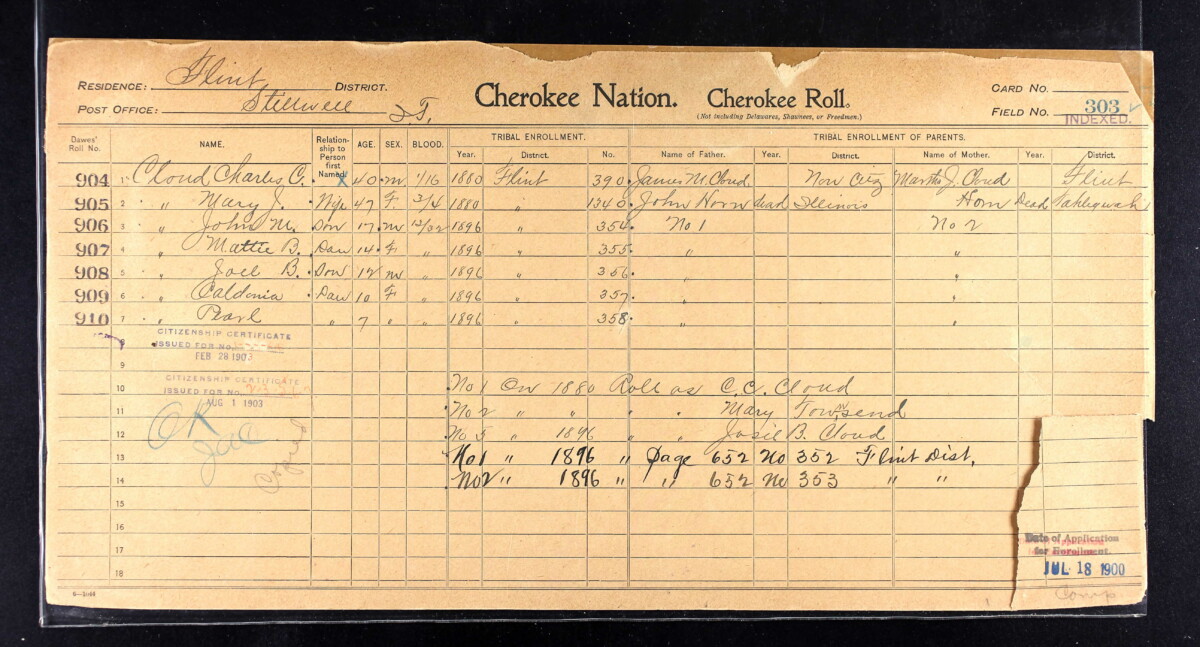 RESIDENCE: Flint DISTRICT.
POST OFFICE: Stillwell I.T.
Cherokee Nation. Cherokee Roll.
(Not including Delawares, Shawnees, or Freedmen.)
CARD NO.
FIELD NO. 303
INDEXED.
Dawes' Roll No. NAME. Relationship to Person first Named. AGE. SEX. BLOOD. TRIBAL ENROLLMENT. TRIBAL ENROLLMENT OF PARENTS.
Year. District. No. Name of Father. Year. District. Name of Mother. Year. District.
904 1 Cloud Charles C. 40 M 1/16 1880 Flint 390 James M. Cloud Non Citz Martha J. Cloud Flint
905 2 " Mary J. Wife 47 F 3/4 1880 " 1340 John Horn dead Illinois Horn Dead Tahlequah
906 3 " John M. Son 17 M 13/32 1896 " 354 No 1 No 2
907 4 " Mattie B. Dau 14 F " 1896 " 355 " "
908 5 " Joel B. Son 12 M " 1896 " 356 " "
909 6 " Caldonia Dau 10 F " 1896 " 357 " "
910 7 " Pearl " 7 " " 1896 " 358 " "
8
CITIZENSHIP CERTIFICATE
ISSUED FOR NO.
FEB 28 1903
9
CITIZENSHIP CERTIFICATE
ISSUED FOR NO.
AUG 1 1903
10 No 1 On 1880 Roll as C.C. Cloud
11 No 2 " " " " Mary Townsend
12 No 5 " 1896 " " Josie B. Cloud
13 No 1 " 1896 " Page 652 No 352 Flint Dist.
14 No 2 " 1896 " " 652 No 353 " "
OK
Copied
15
16
17
18
Date of Application
for Enrollment.
JUL 18 1900
Comp